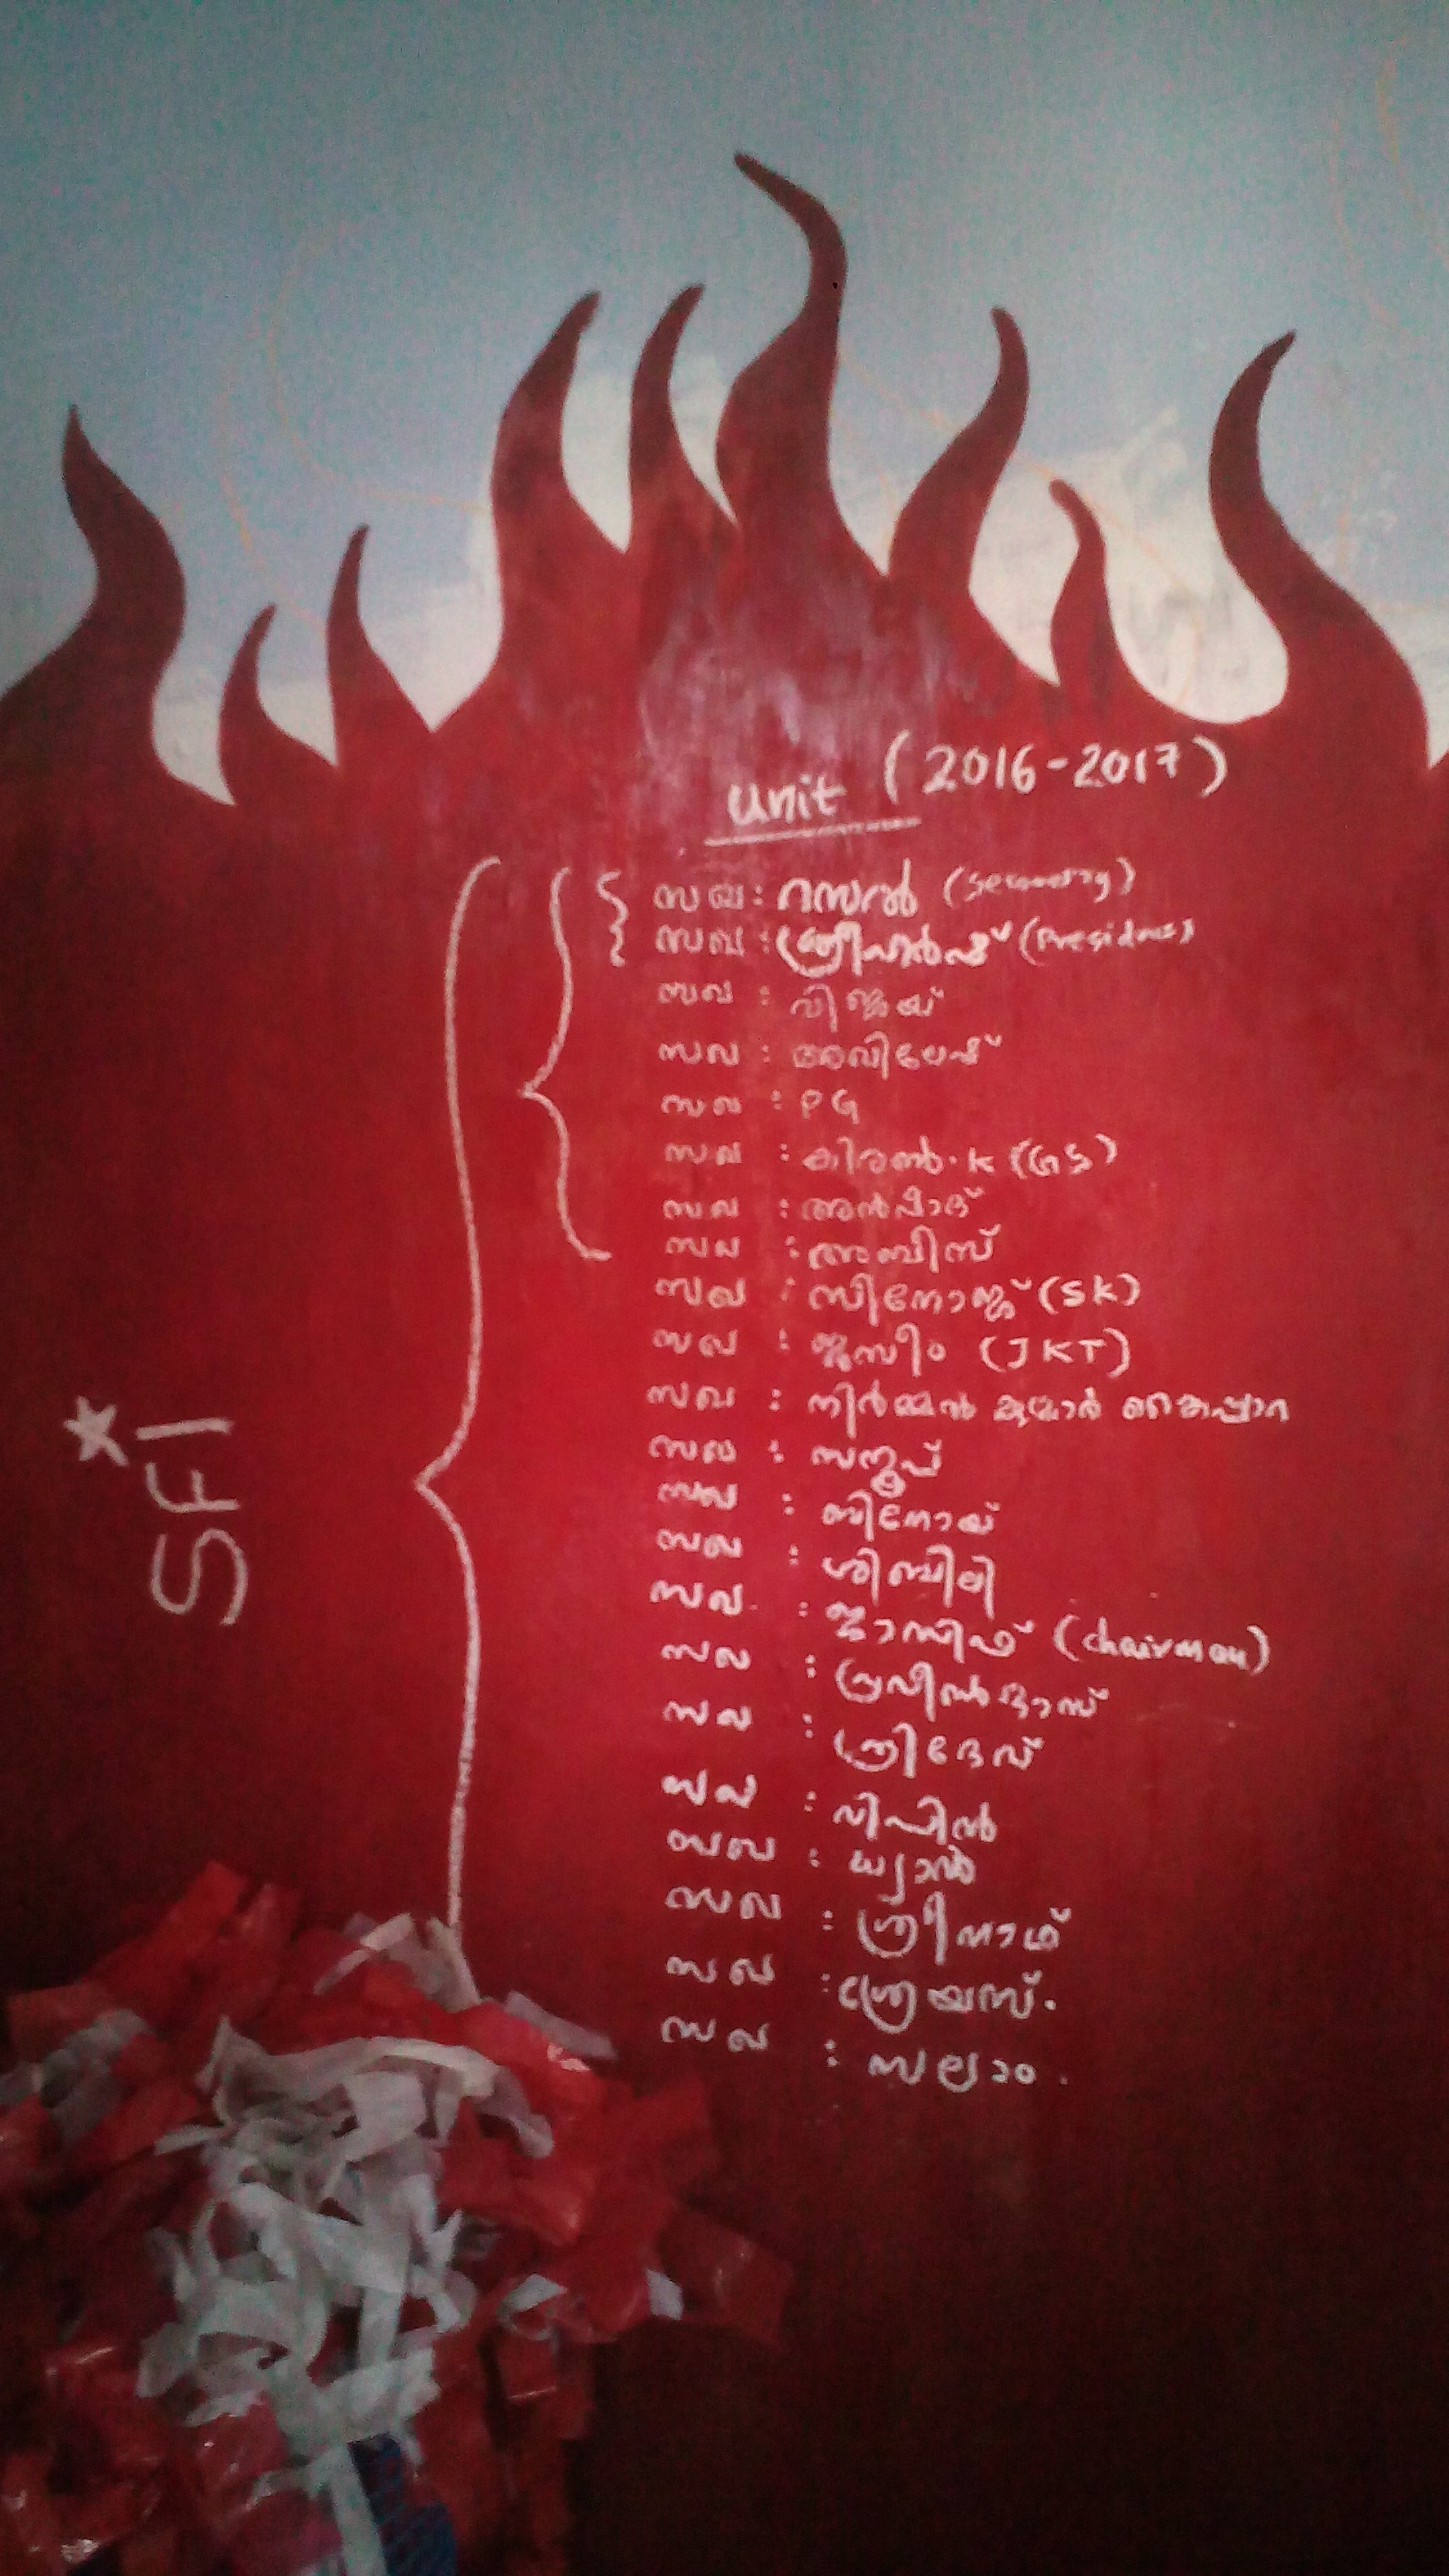 unit (2016-2017)
സഖ : റസൽ (Secretary)
സഖ : ശ്രീഹർഷ് (President)
സഖ : വിജയ്
സഖ : അഖിലേഷ്
സഖ : PG
സഖ : കിരൺ.K (GS)
സഖ : അൻഷാദ്
സഖ : അബിസ്
സഖ : സിനോജ് (SK)
സഖ : ജസീം (JKT)
സഖ : നിർമ്മൽ കുമാർ കൈപ്പാറ
സഖ : സനൂപ്
സഖ : ബിനോയ്
സഖ : ശിബിലി
സഖ : ജാസിഫ് (chairman)
സഖ : പ്രവീൺദാസ്
സഖ : ശ്രീദേവ്
സഖ : വിപിൻ
സഖ : ധ്യാൻ
സഖ : ശ്രീനാഥ്
സഖ : ശ്രേയസ്.
സഖ : സലാം.
SFI